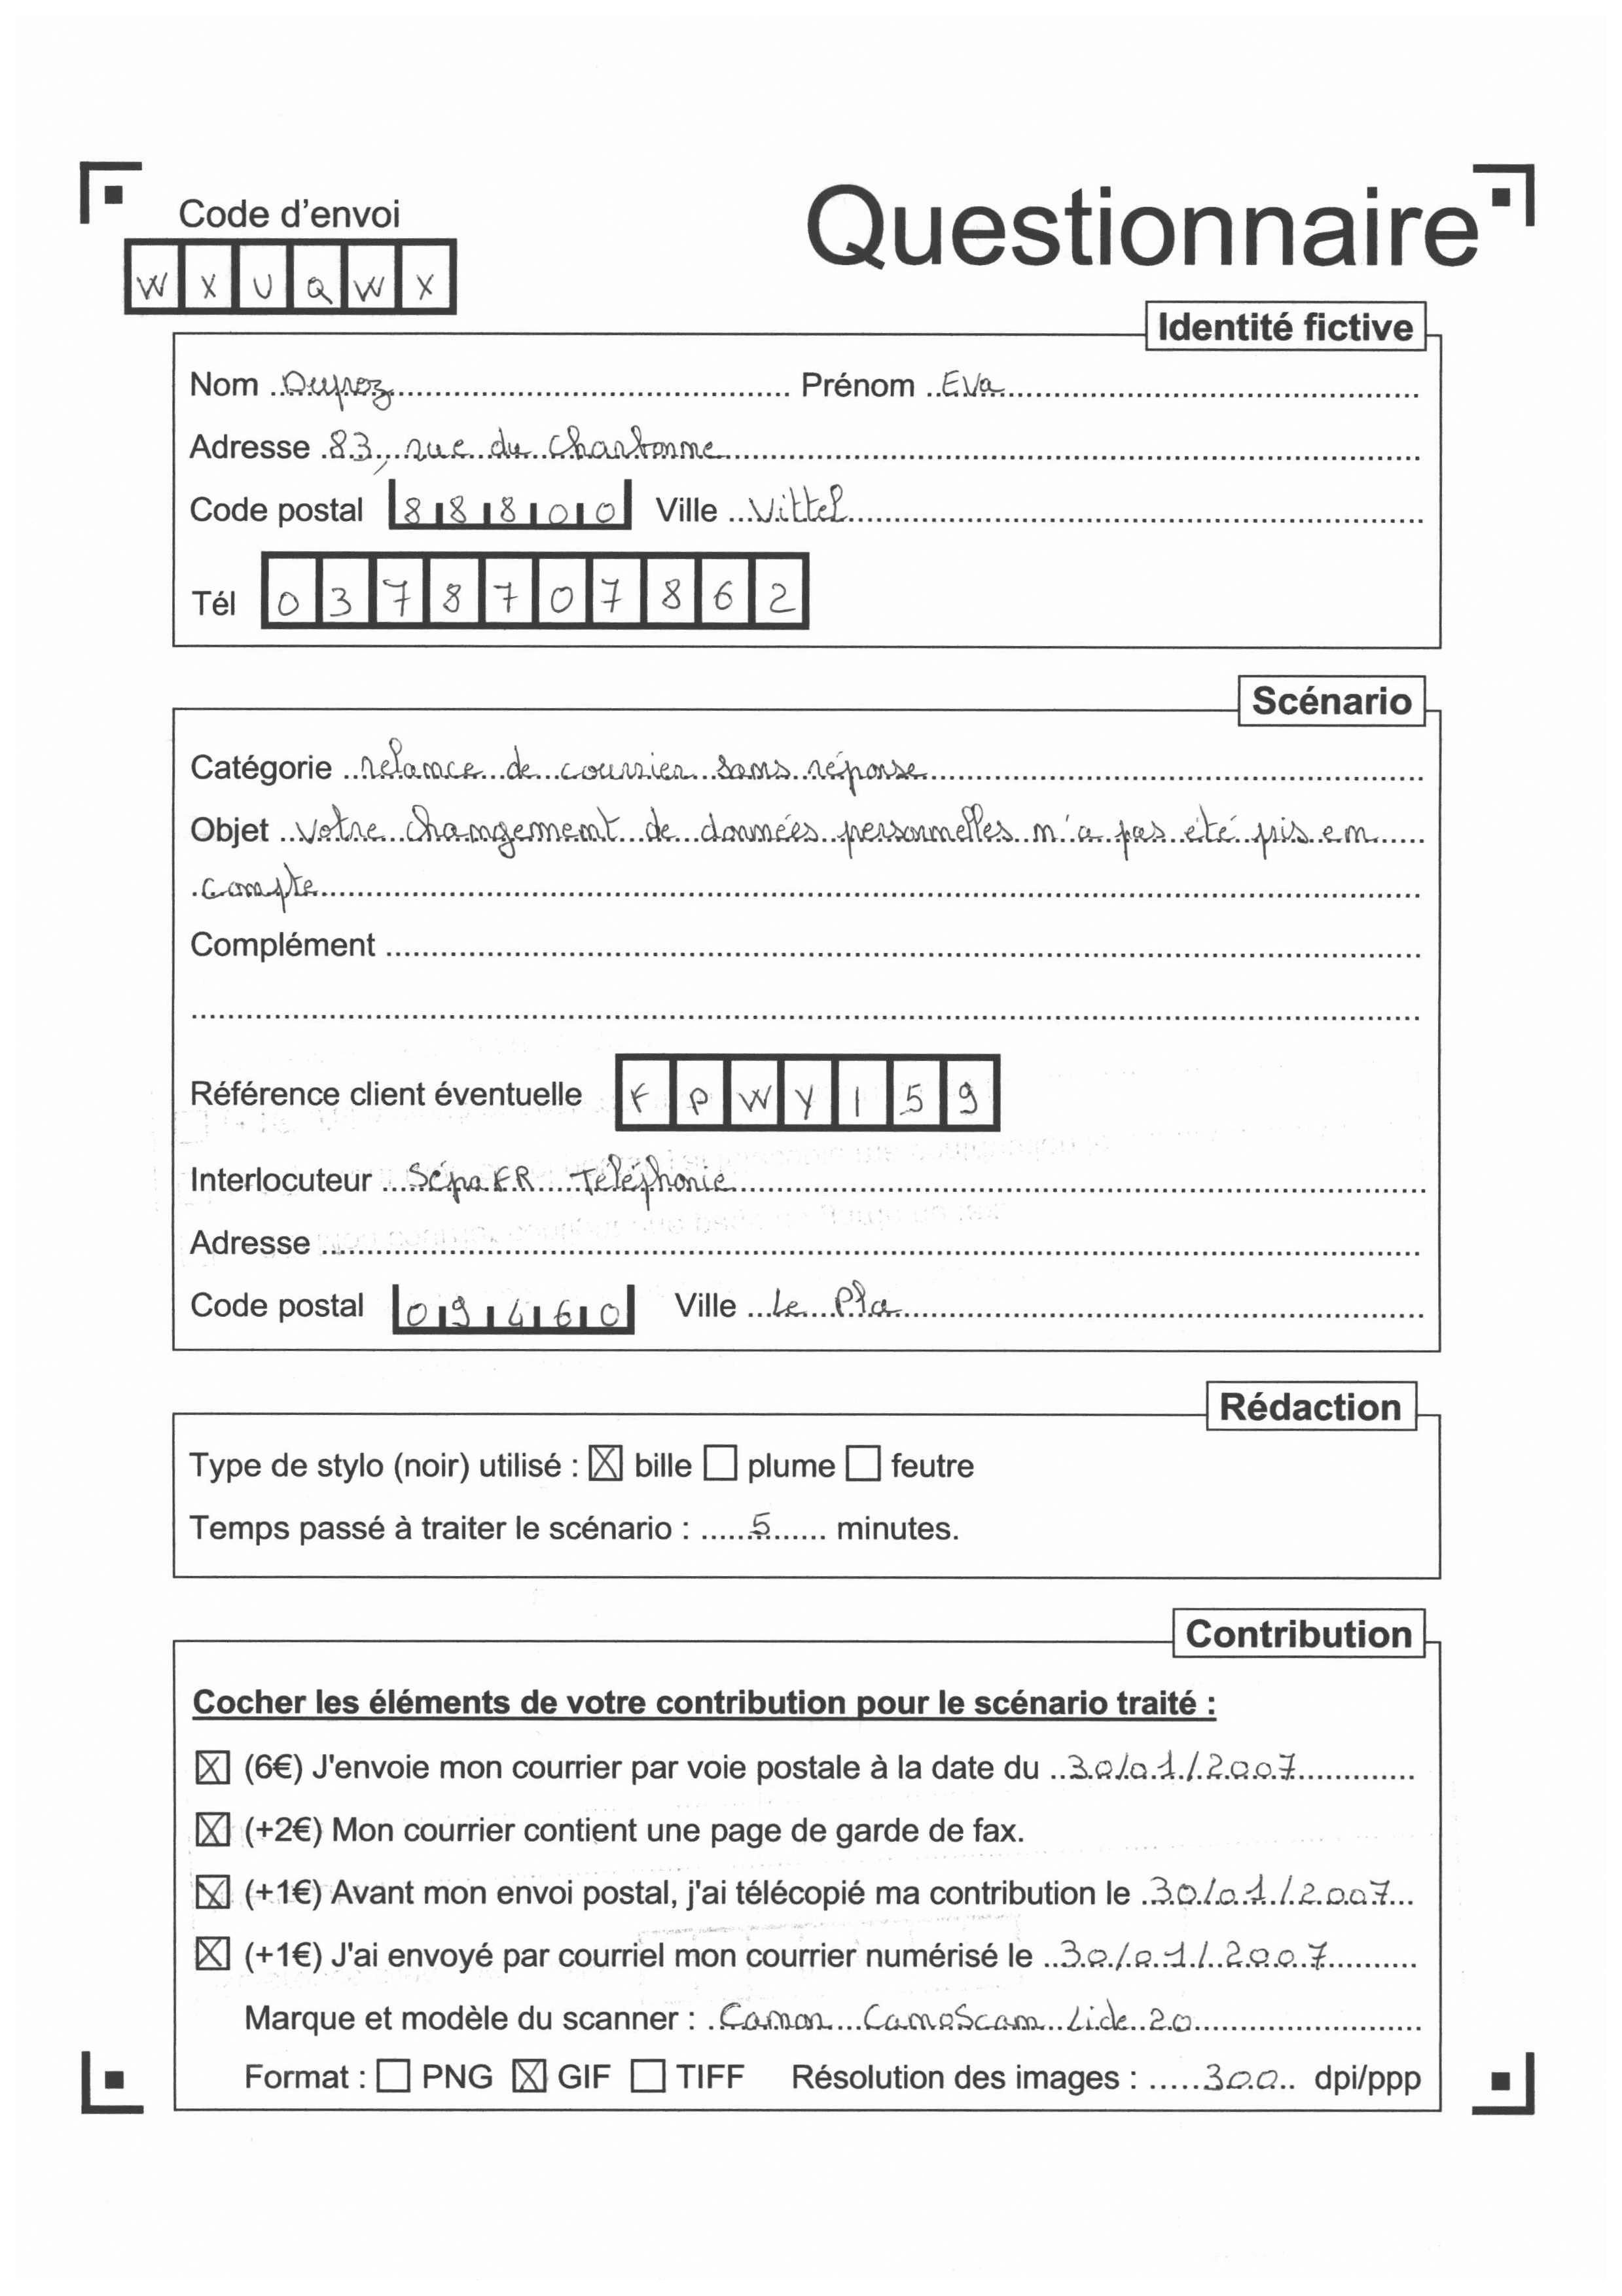 Code d'envoi
Questionnaire
W X U Q W X
Identité fictive
Nom Duprez Prénom Eva
Adresse 83, rue du Charbonne
Code postal 88800 Ville Vittel
Tél 0378707862
Scénario
Catégorie relance de courrier sans réponse
Objet votre changement de données personnelles n'a pas été pris en
compte
Complément
Référence client éventuelle F P W Y 1 5 9
Interlocuteur SépaFR Téléphonie
Adresse
Code postal 09460 Ville Le Pla
Rédaction
Type de stylo (noir) utilisé : ☒ bille ☐ plume ☐ feutre
Temps passé à traiter le scénario : 5 minutes.
Contribution
Cocher les éléments de votre contribution pour le scénario traité :
☒ (6€) J'envoie mon courrier par voie postale à la date du 30/01/2007
☒ (+2€) Mon courrier contient une page de garde de fax.
☒ (+1€) Avant mon envoi postal, j'ai télécopié ma contribution le 30/01/2007
☒ (+1€) J'ai envoyé par courriel mon courrier numérisé le 30/01/2007
Marque et modèle du scanner : Canon CanoScan Lide 20
Format : ☐ PNG ☒ GIF ☐ TIFF Résolution des images : 300 dpi/ppp